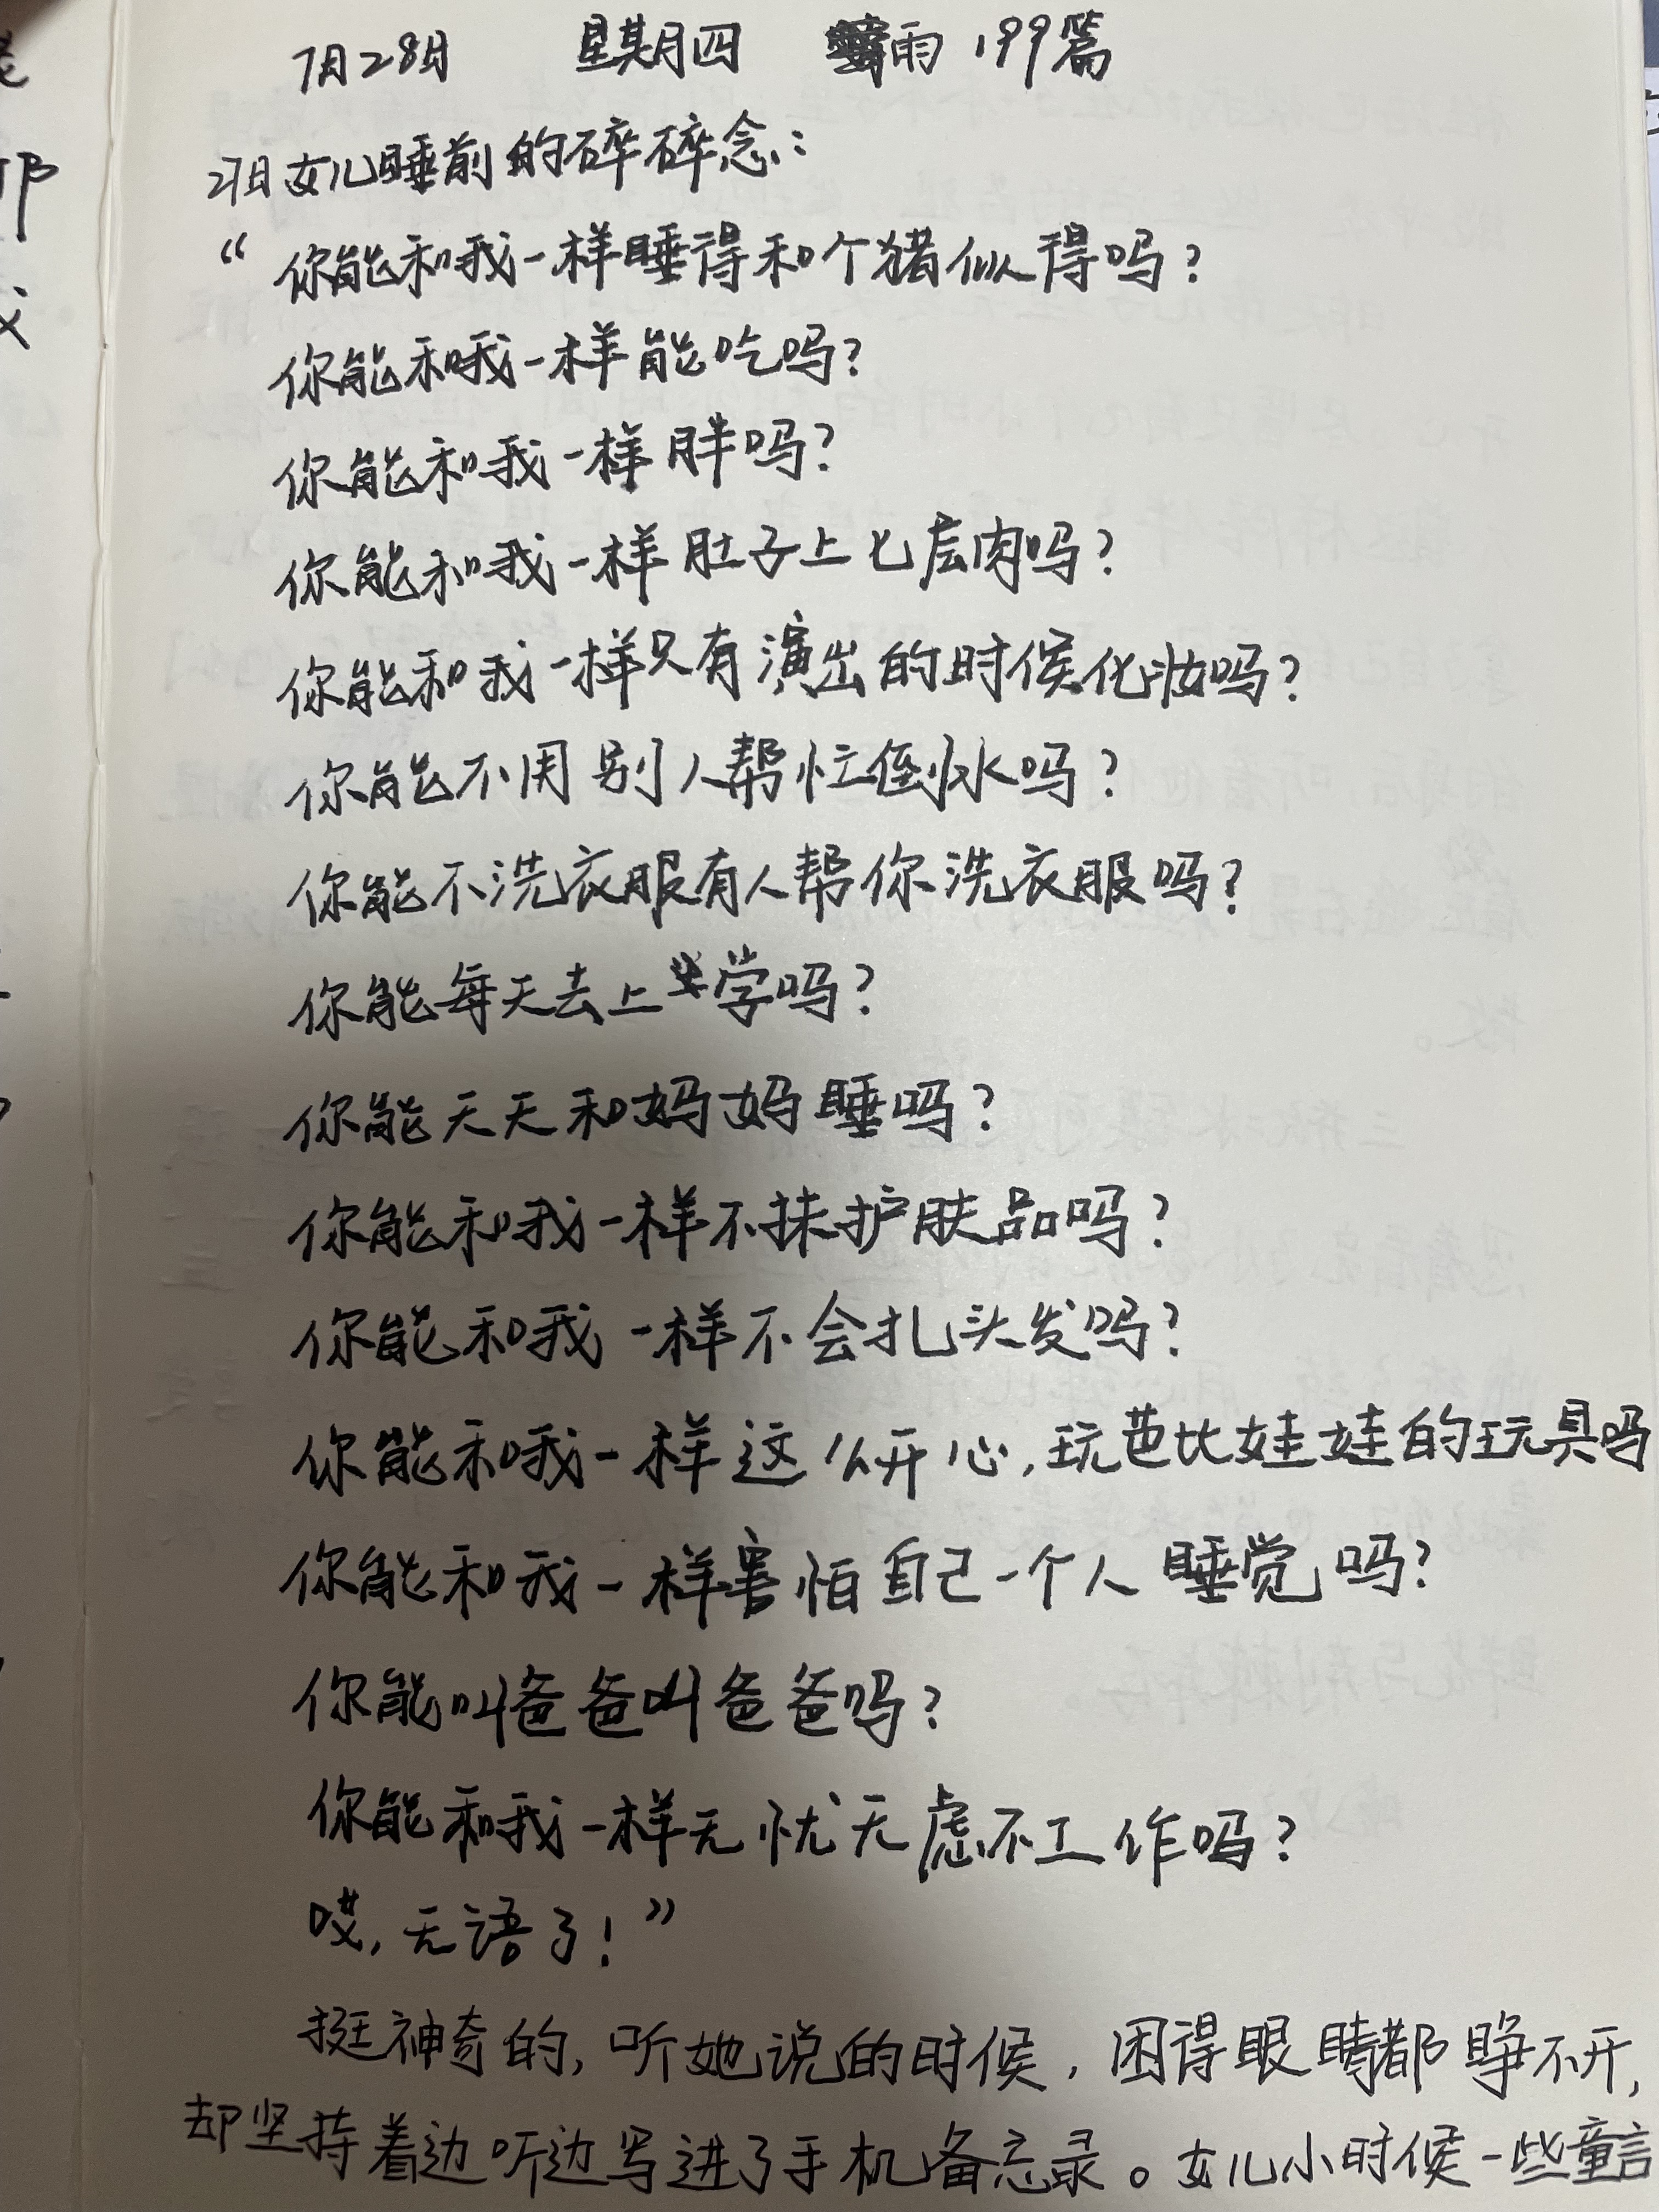 7月28日 星期四 雨 199篇
27日女儿睡前的碎碎念:
“你能和我一样睡得和个猪似得吗?
你能和我一样能吃吗?
你能和我一样胖吗?
你能和我一样肚子上七层肉吗?
你能和我一样只有演出的时候化妆吗?
你能不用别人帮忙倒水吗?
你能不洗衣服有人帮你洗衣服吗?
你能每天去上学吗?
你能天天和妈妈睡吗?
你能和我一样不抹护肤品吗?
你能和我一样不会扎头发吗?
你能和我一样这么开心,玩芭比娃娃的玩具吗
你能和我一样害怕自己一个人睡觉吗?
你能叫爸爸叫爸爸吗?
你能和我一样无忧无虑不工作吗?
哎,无语了!”
挺神奇的,听她说的时候,困得眼睛都睁不开,
却坚持着边听边写进了手机备忘录。女儿小时候一些童言